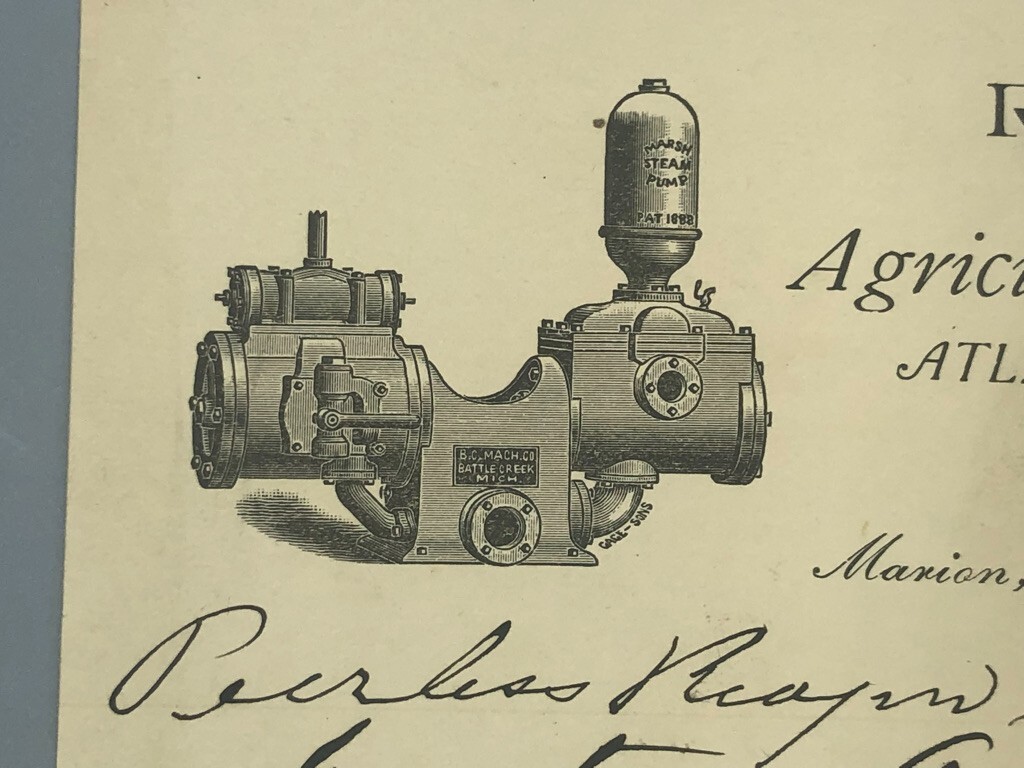 MARSH
STEAM
PUMP
PAT 1888
Agricu
ATL
B.C. MACH. CO
BATTLE CREEK
MICH.
GAGE-SONS
Marion,
Peerless Reaper